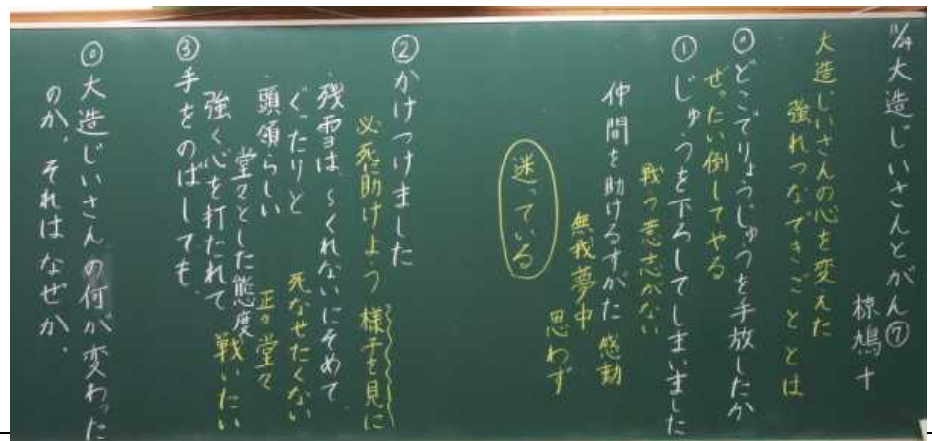 11/24 大造じいさんとがん⑦
椋鳩十
大造じいさんの心を変えた
強れつなできごととは
◎どこでりょうじゅうを手放したか
ぜったい倒してやる
①じゅうを下ろしてしまいました
戦う意志がない
仲間を助けるすがた 感動
無我夢中
思わず
迷っている
②かけつけました
必死に助けよう 様子を見に
残雪は、~くれないにそめて
ぐったりと 死なせたくない
頭領らしい 正々堂々
堂々とした態度 戦いたい
強く心を打たれて
③手をのばしても、
◎大造じいさんの何が変わった
のか。それはなぜか。